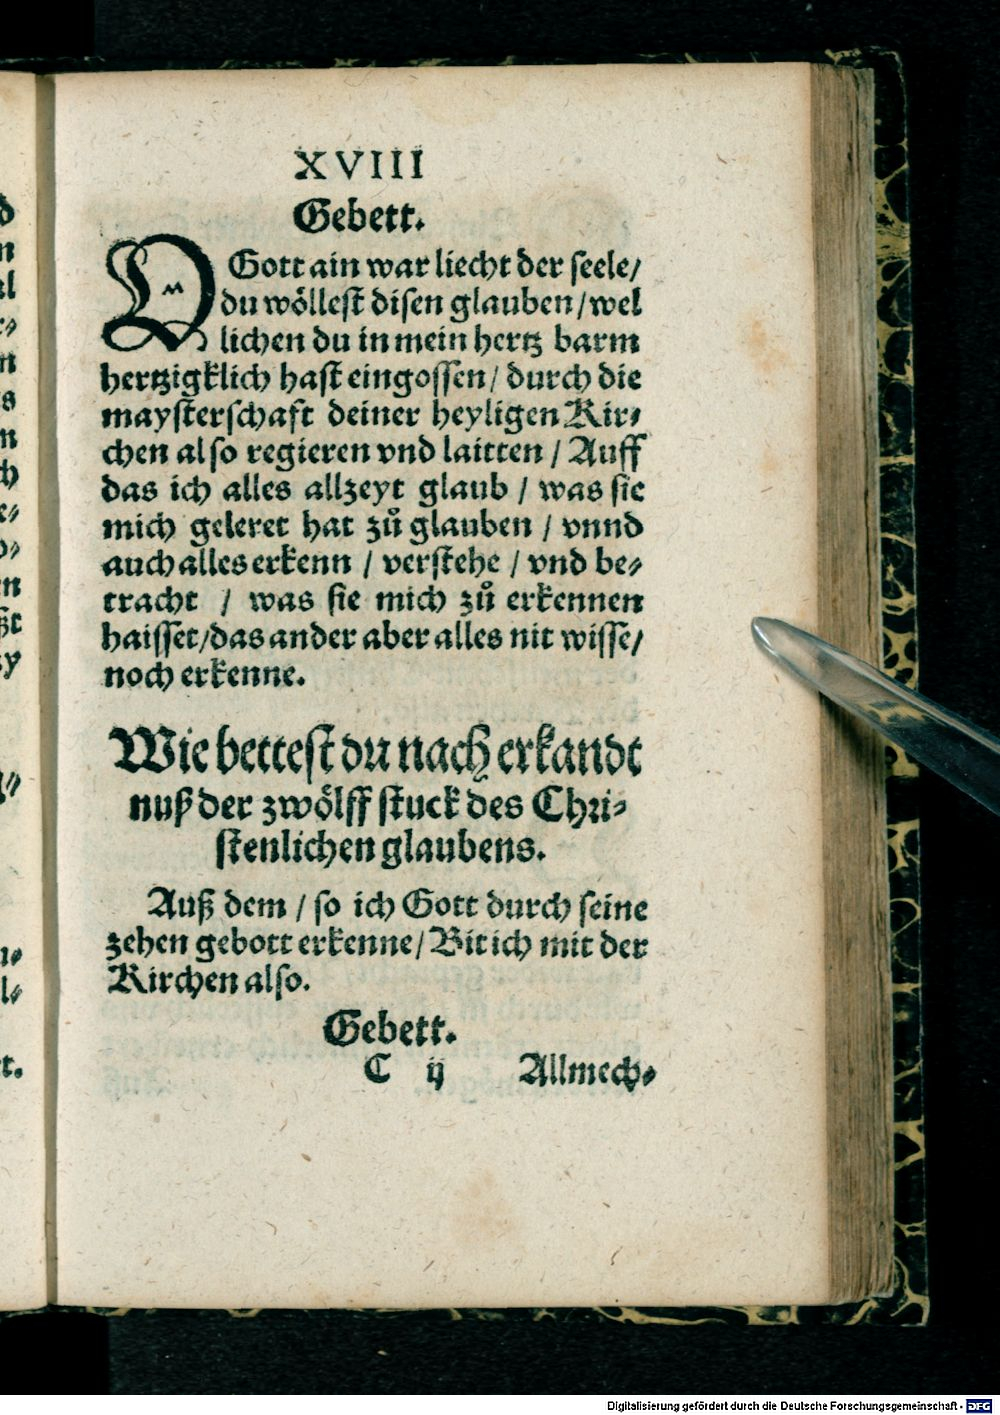 XVIII
Gebett.
O Gott ain war liecht der seele/
du wöllest disen glauben/wel
lichen du in mein hertz barm
hertzigklich hast eingossen/ durch die
maysterschaft deiner heyligen Kir⸗
chen also regieren vnd laitten / Auff
das ich alles allzeyt glaub / was sie
mich geleret hat zů glauben / vnnd
auch alles erkenn / verstehe / vnd be⸗
tracht / was sie mich zů erkennen
haisset/das ander aber alles nit wisse/
noch erkenne.
Wie bettest du nach erkandt
nuß der zwölff stuck des Chri⸗
stenlichen glaubens.
Auß dem / so ich Gott durch seine
zehen gebott erkenne/ Bit ich mit der
Kirchen also.
Gebett.
C ij Allmech⸗
Digitalisierung gefördert durch die Deutsche Forschungsgemeinschaft - DFG